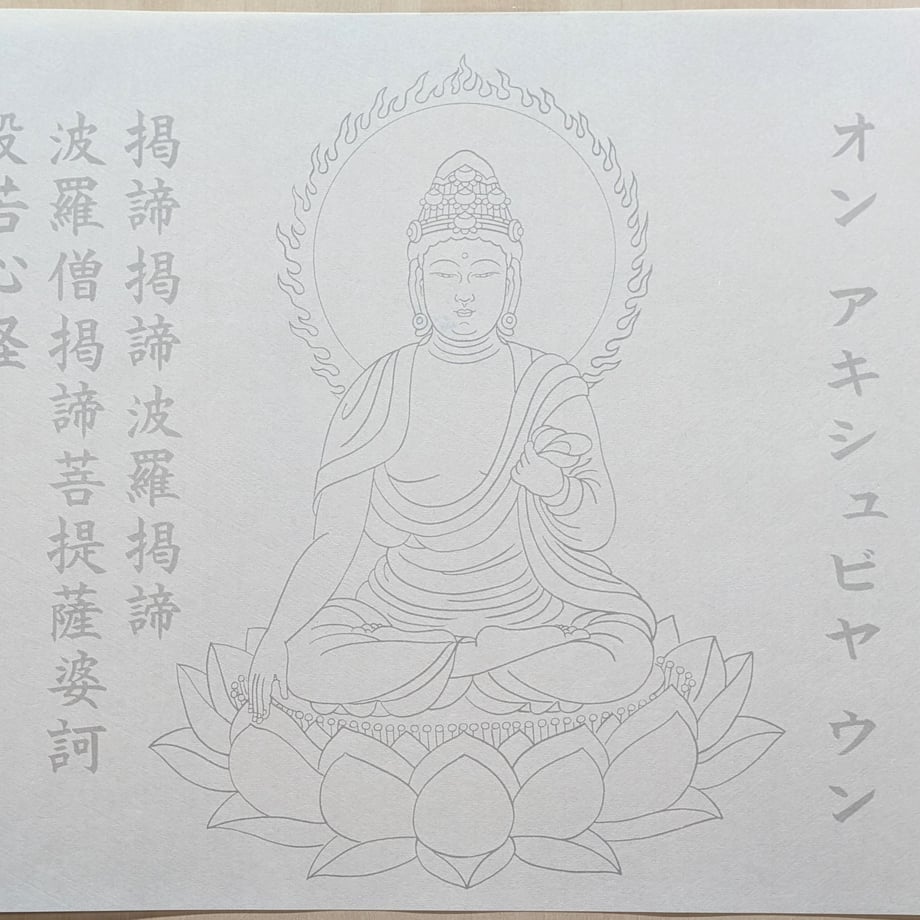 オン アキシュビヤ ウン
揭諦揭諦波羅揭諦
波羅僧揭諦菩提薩婆訶
般若心経